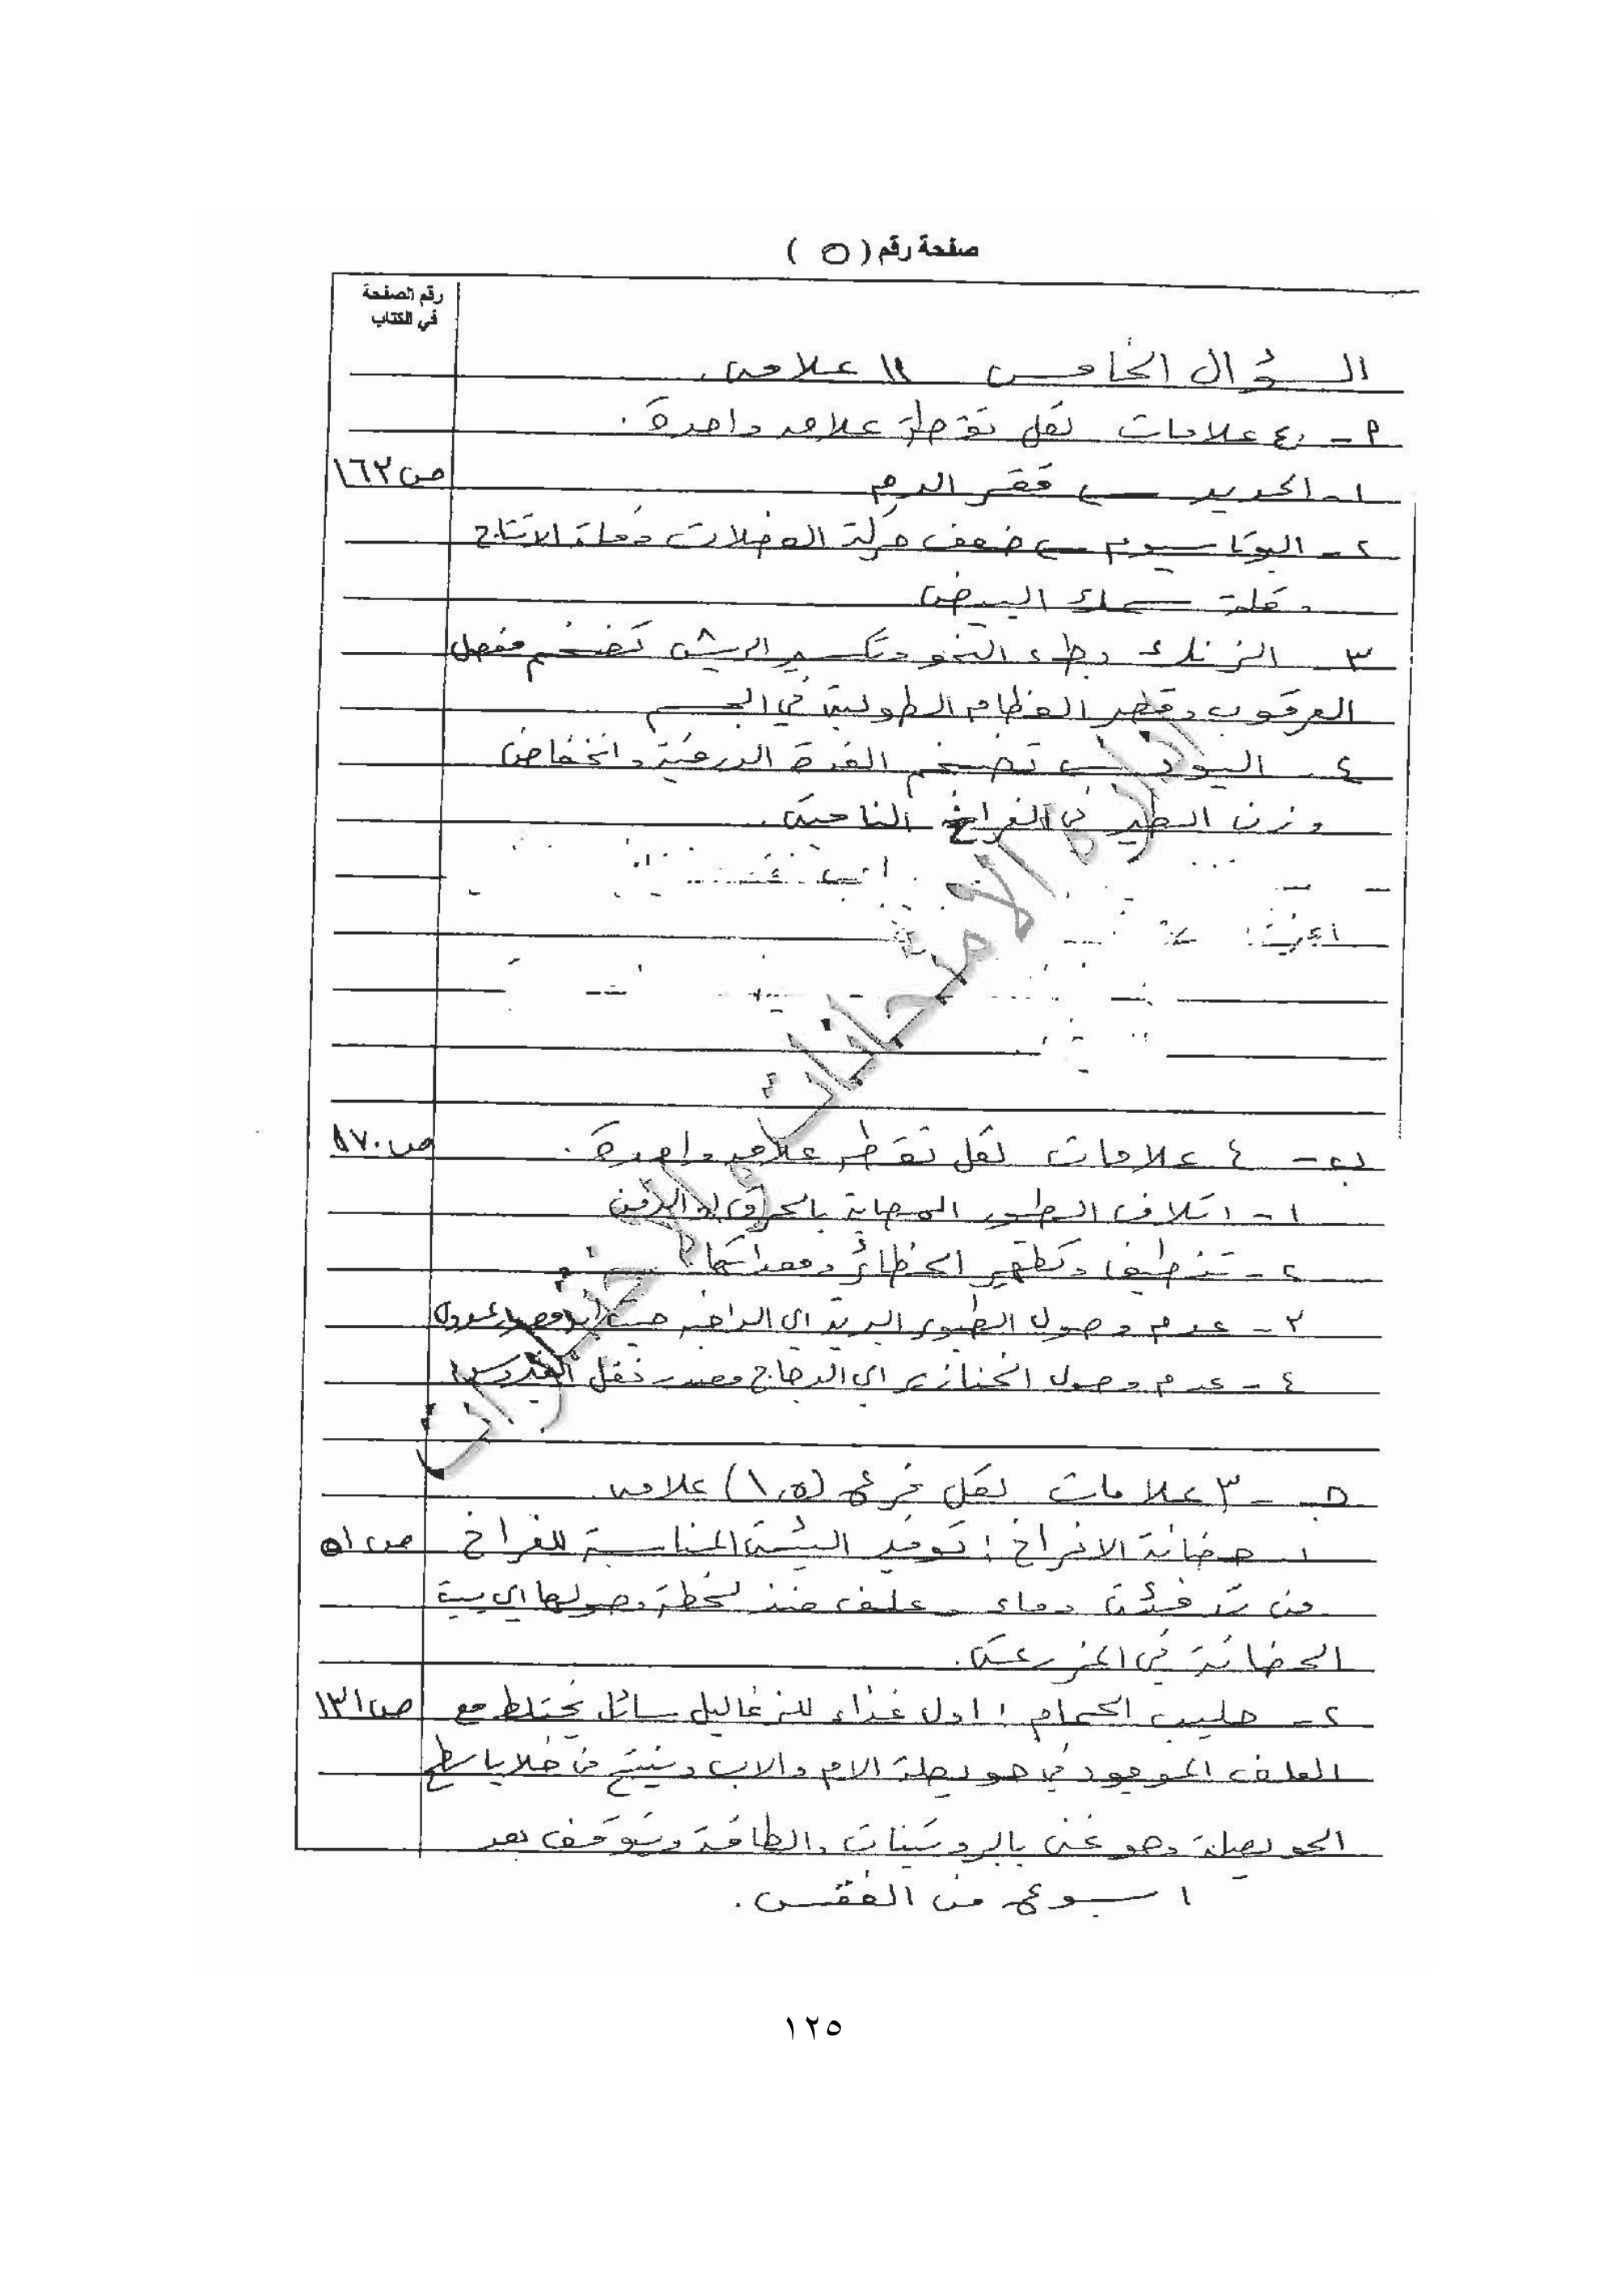 صفحة رقم ( ٥ )
رقم الصفحة
في الكتاب
السؤال الخامس ١١ علامه.
أ - ٤ علامات لكل نقطة علامه واحدة.
١- الحديد ← فقر الدم ص ١٦٢
٢- البوتاسيوم ← ضعف حركة العضلات وقلة الانتاج
وقلة سمك البيض
٣- الزنك وبطء النمو وتكسير الريش تضخم مفصل
العرقوب وقصر العظام الطولية في الجسم
٤- اليود ← تضخم الغدة الدرقية وانخفاض
وزن الطير في الفراخ الناحية.
ب - ٤ علامات لكل نقطه علامه واحدة. ص ١٧٠
١- اتلاف الطيور المصابة بالحرق او الدفن
٢- تنظيف وتطهير الحظائر ومعداتها
٣- عدم وصول الطيور البرية الى الداجنه حيث
٤- عدم وصول الخنازير الى الدجاج مصدر نقل الفيروس
ج - ٣ علامات لكل فرع (١,٥) علامه.
١- حضانة الافراخ : توفير البيئة المناسبة للفراخ ص ٥١
من تدفئة وماء وعلف منذ لحظة وصولها الى بيت
الحضانة في المزرعة.
٢- حليب الحمام : اول غذاء للزغاليل سائل يختلط مع ص ١٣١
العلف الموجود في حويصلة الام والاب وينتج من خلايا سطح
الحويصلة وهو غني بالبروتينات والطاقة ويتوقف بعد
اسبوع من الفقس.
ادارة الامتحانات والاختبارات
١٢٥